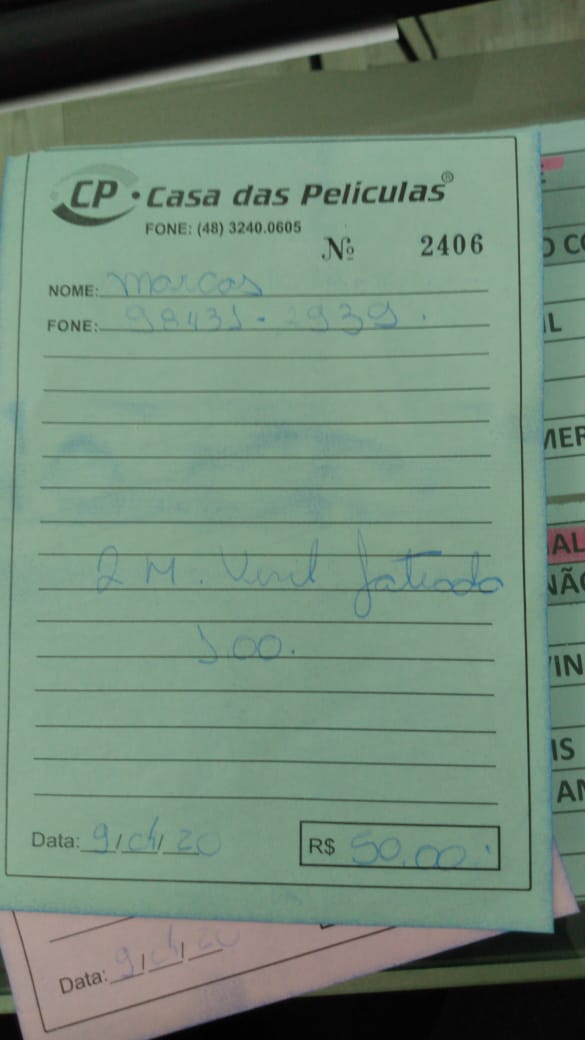 CP • Casa das Películas®
FONE: (48) 3240.0605
Nº 2406
NOME: Marcos
FONE: 98431.2939.
2 M. Jateado
1.00.
Data: 9/04/20
R$ 50,00
Data: 9/04/20
O CO
L
MER
AL
NÃO
VIN
IS
AN